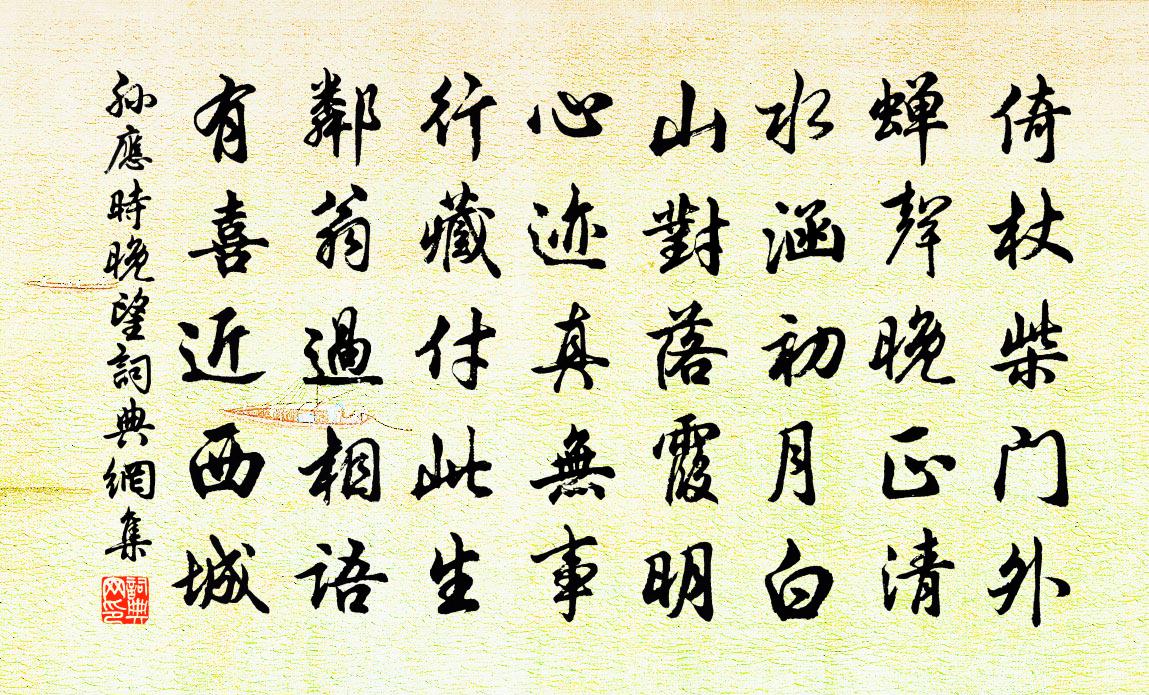 倚杖柴门外
蝉聲晚正清
水涵初月白
山對落霞明
心迹真無事
行藏付此生
鄰翁過相語
有喜近西城
孙應時晚望詞典網集
詞典網印